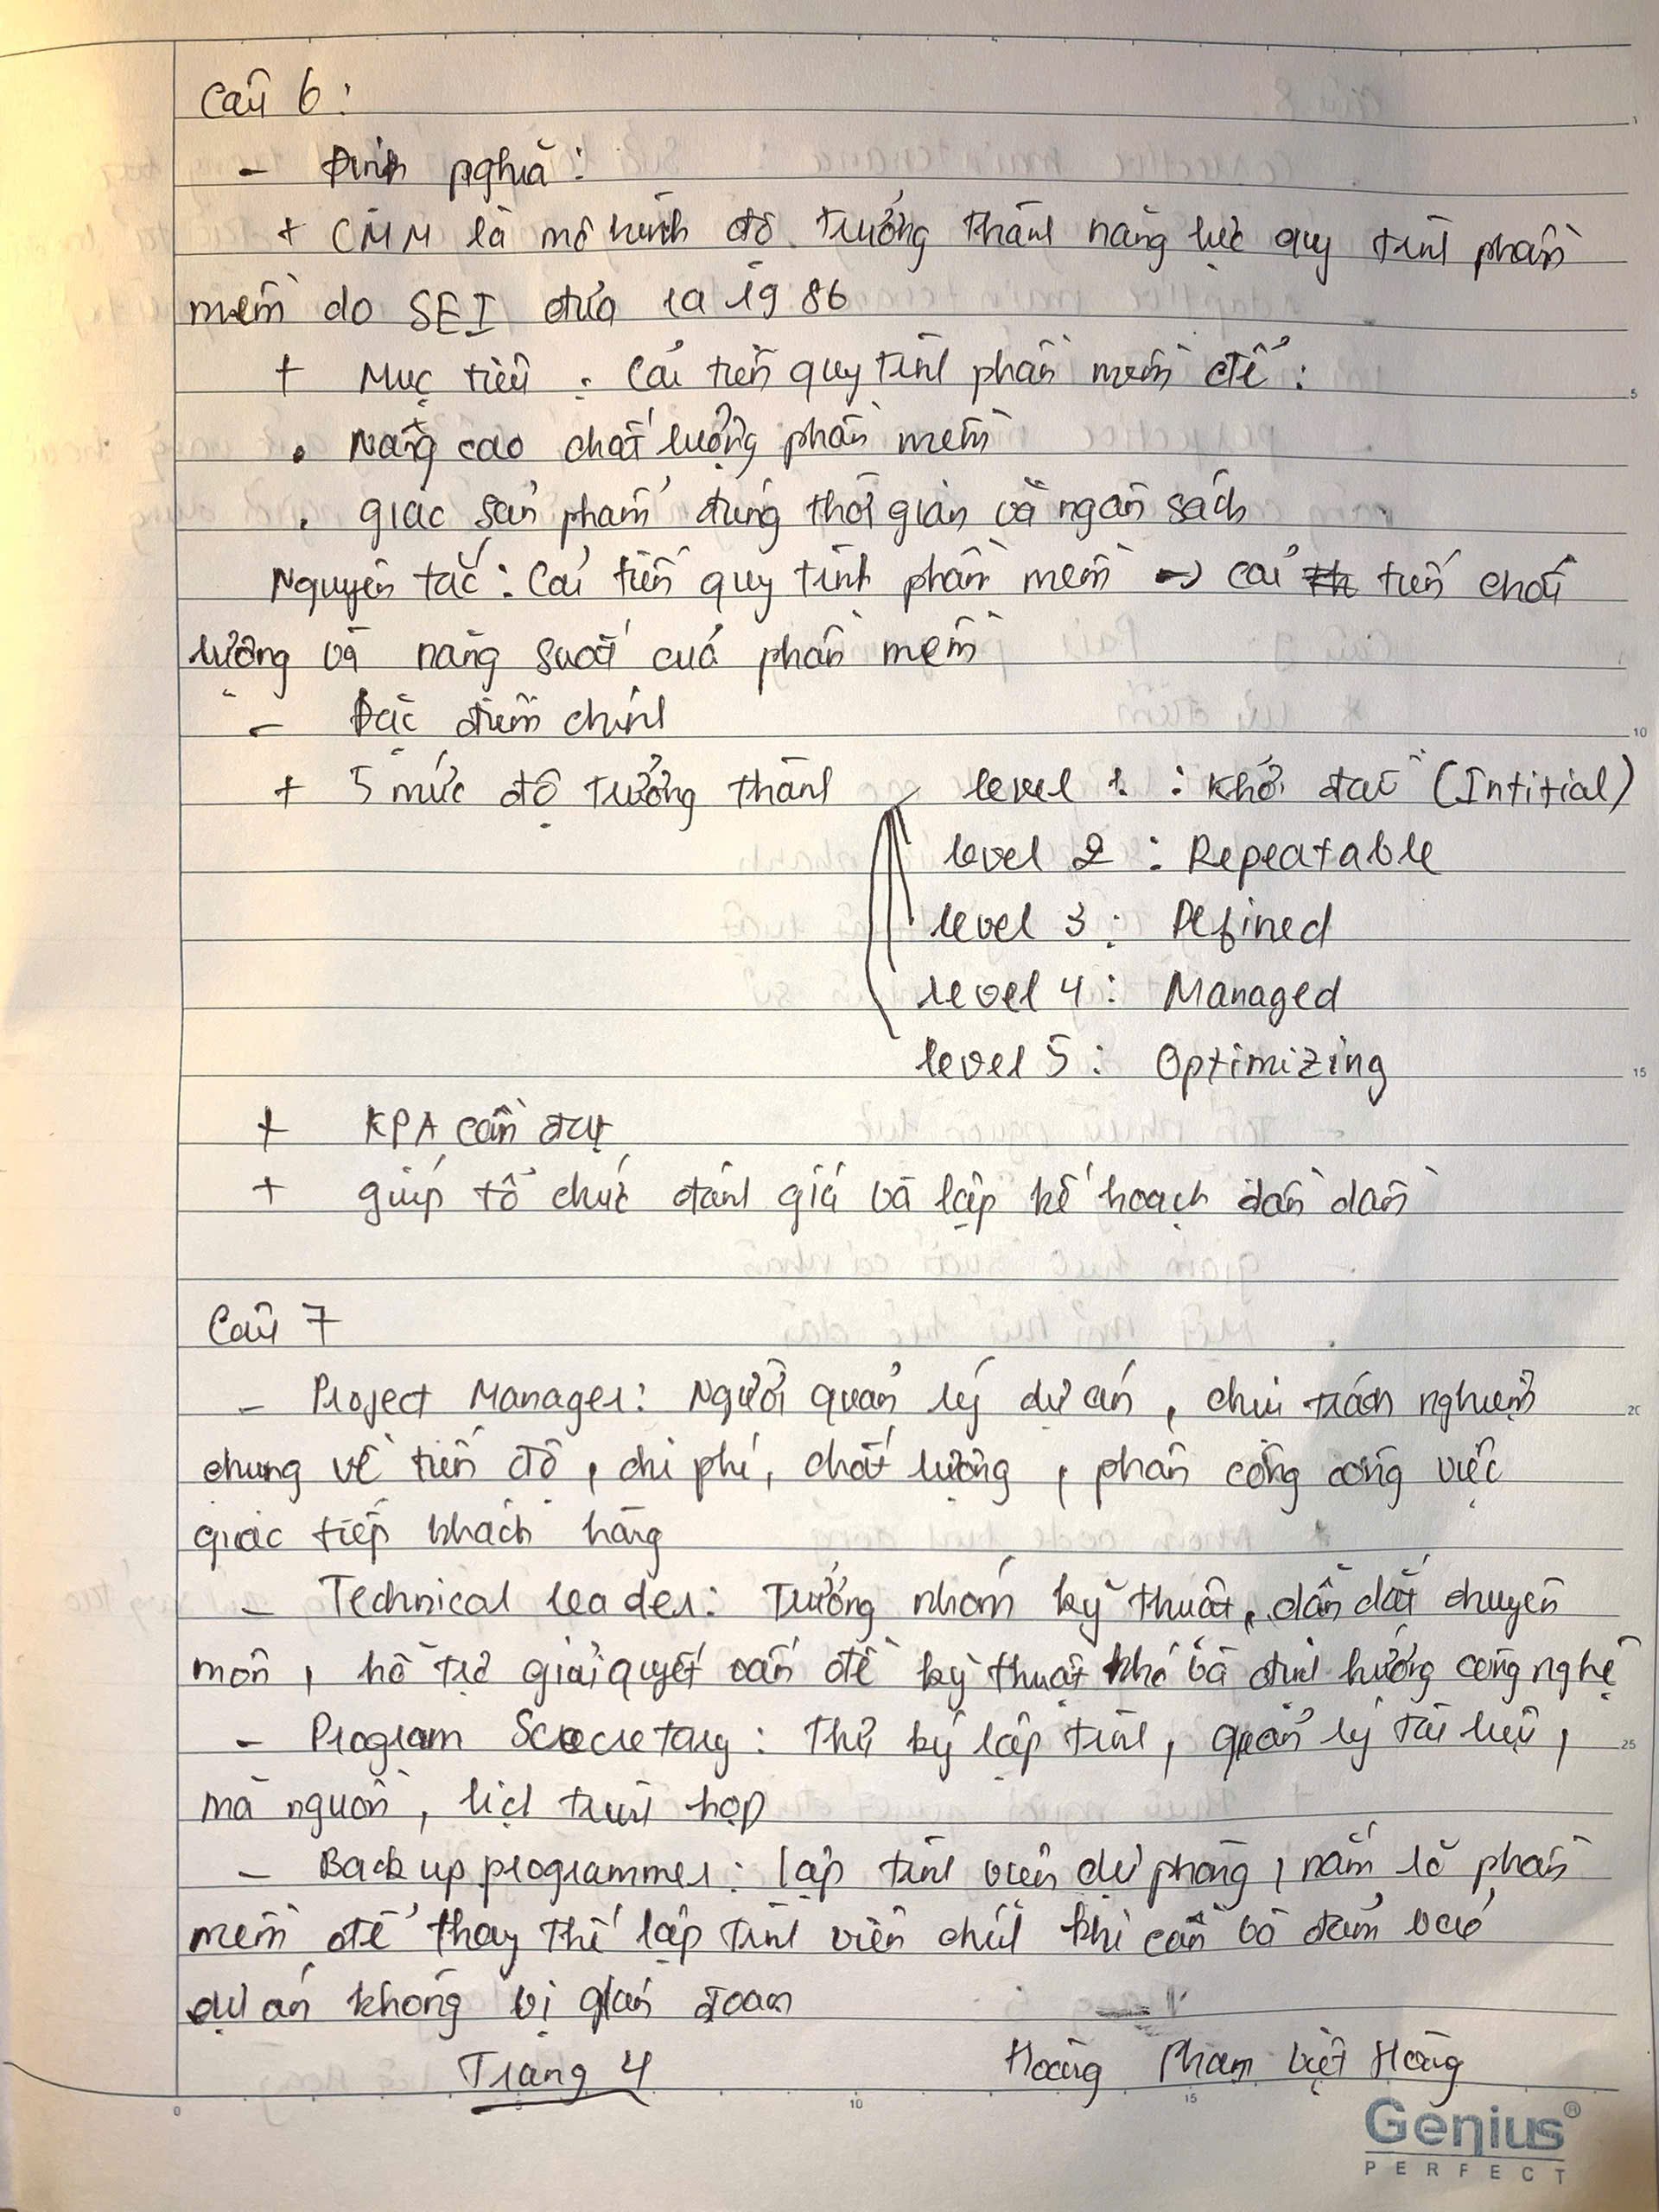 Câu 6 :
- Định nghĩa :
+ CMM là mô hình độ trưởng thành năng lực quy trình phần
mềm do SEI đưa ra 1986
+ Mục tiêu : Cải tiến quy trình phần mềm để :
. Nâng cao chất lượng phần mềm
. giao sản phẩm đúng thời gian và ngân sách
Nguyên tắc : Cải tiến quy trình phần mềm → cải tiến chất
lượng và năng suất của phần mềm
- Đặc điểm chính
+ 5 mức độ trưởng thành level 1 : Khởi đầu (Intitial)
level 2 : Repeatable
level 3 : Defined
level 4 : Managed
level 5 : Optimizing
+ KPA cần
+ giúp tổ chức đánh giá và lập kế hoạch dần dần
Câu 7
- Project Manager : Người quản lý dự án , chịu trách nghiệm
chung về tiến độ , chi phí , chất lượng , phân công công việc
giao tiếp khách hàng
- Technical leader : Trưởng nhóm kỹ thuật , dẫn dắt chuyên
môn , hỗ trợ giải quyết vấn đề kỹ thuật khó và định hướng công nghệ
- Program : Thư ký lập trình , quản lý tài liệu ,
mã nguồn , lịch trình họp
- Back up programmer : lập trình viên dự phòng , nắm rõ phần
mềm để thay thế lập trình viên chính khi cần
dự án không bị gián đoạn
Trang 4 Hoàng Phạm Việt Hoàng
0 5 10 15
Genius®
PERFECT